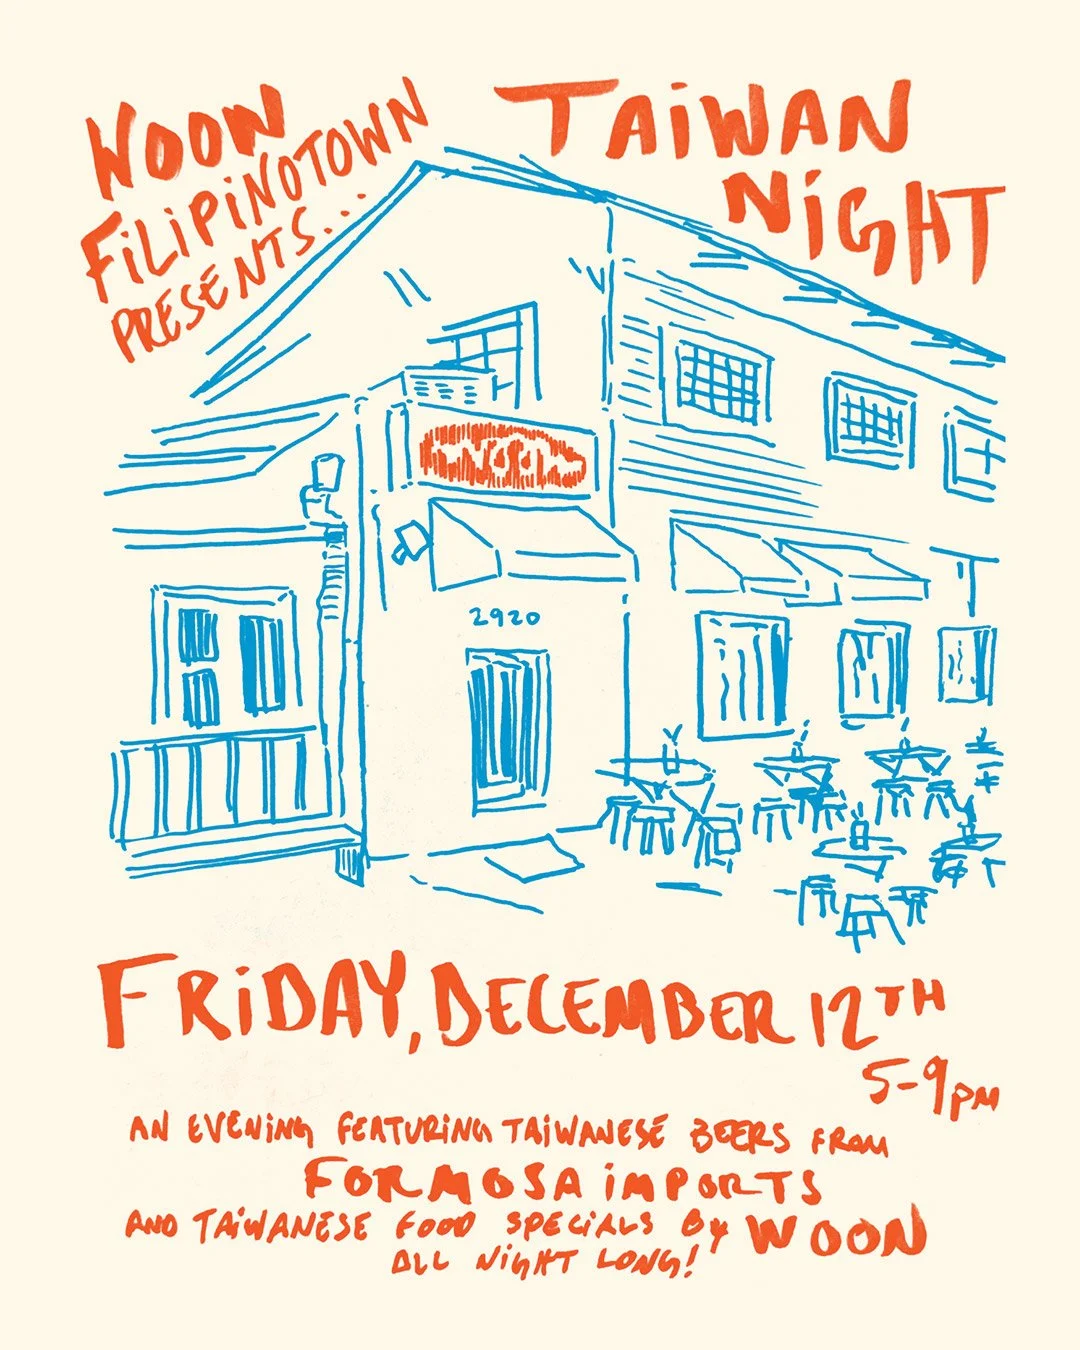 WOON
FiLiPiNOTOWN
PRESENTS...
TAiWAN
NiGHT
2920
FRiDAY, DECEMBER 12TH
5-9PM
AN EVENiNG FEATURiNG TAiWANESE BEERS FROM
FORMOSA iMPORTS
AND TAiWANESE FOOD SPECiALS By WOON
ALL NiGHT LONG!